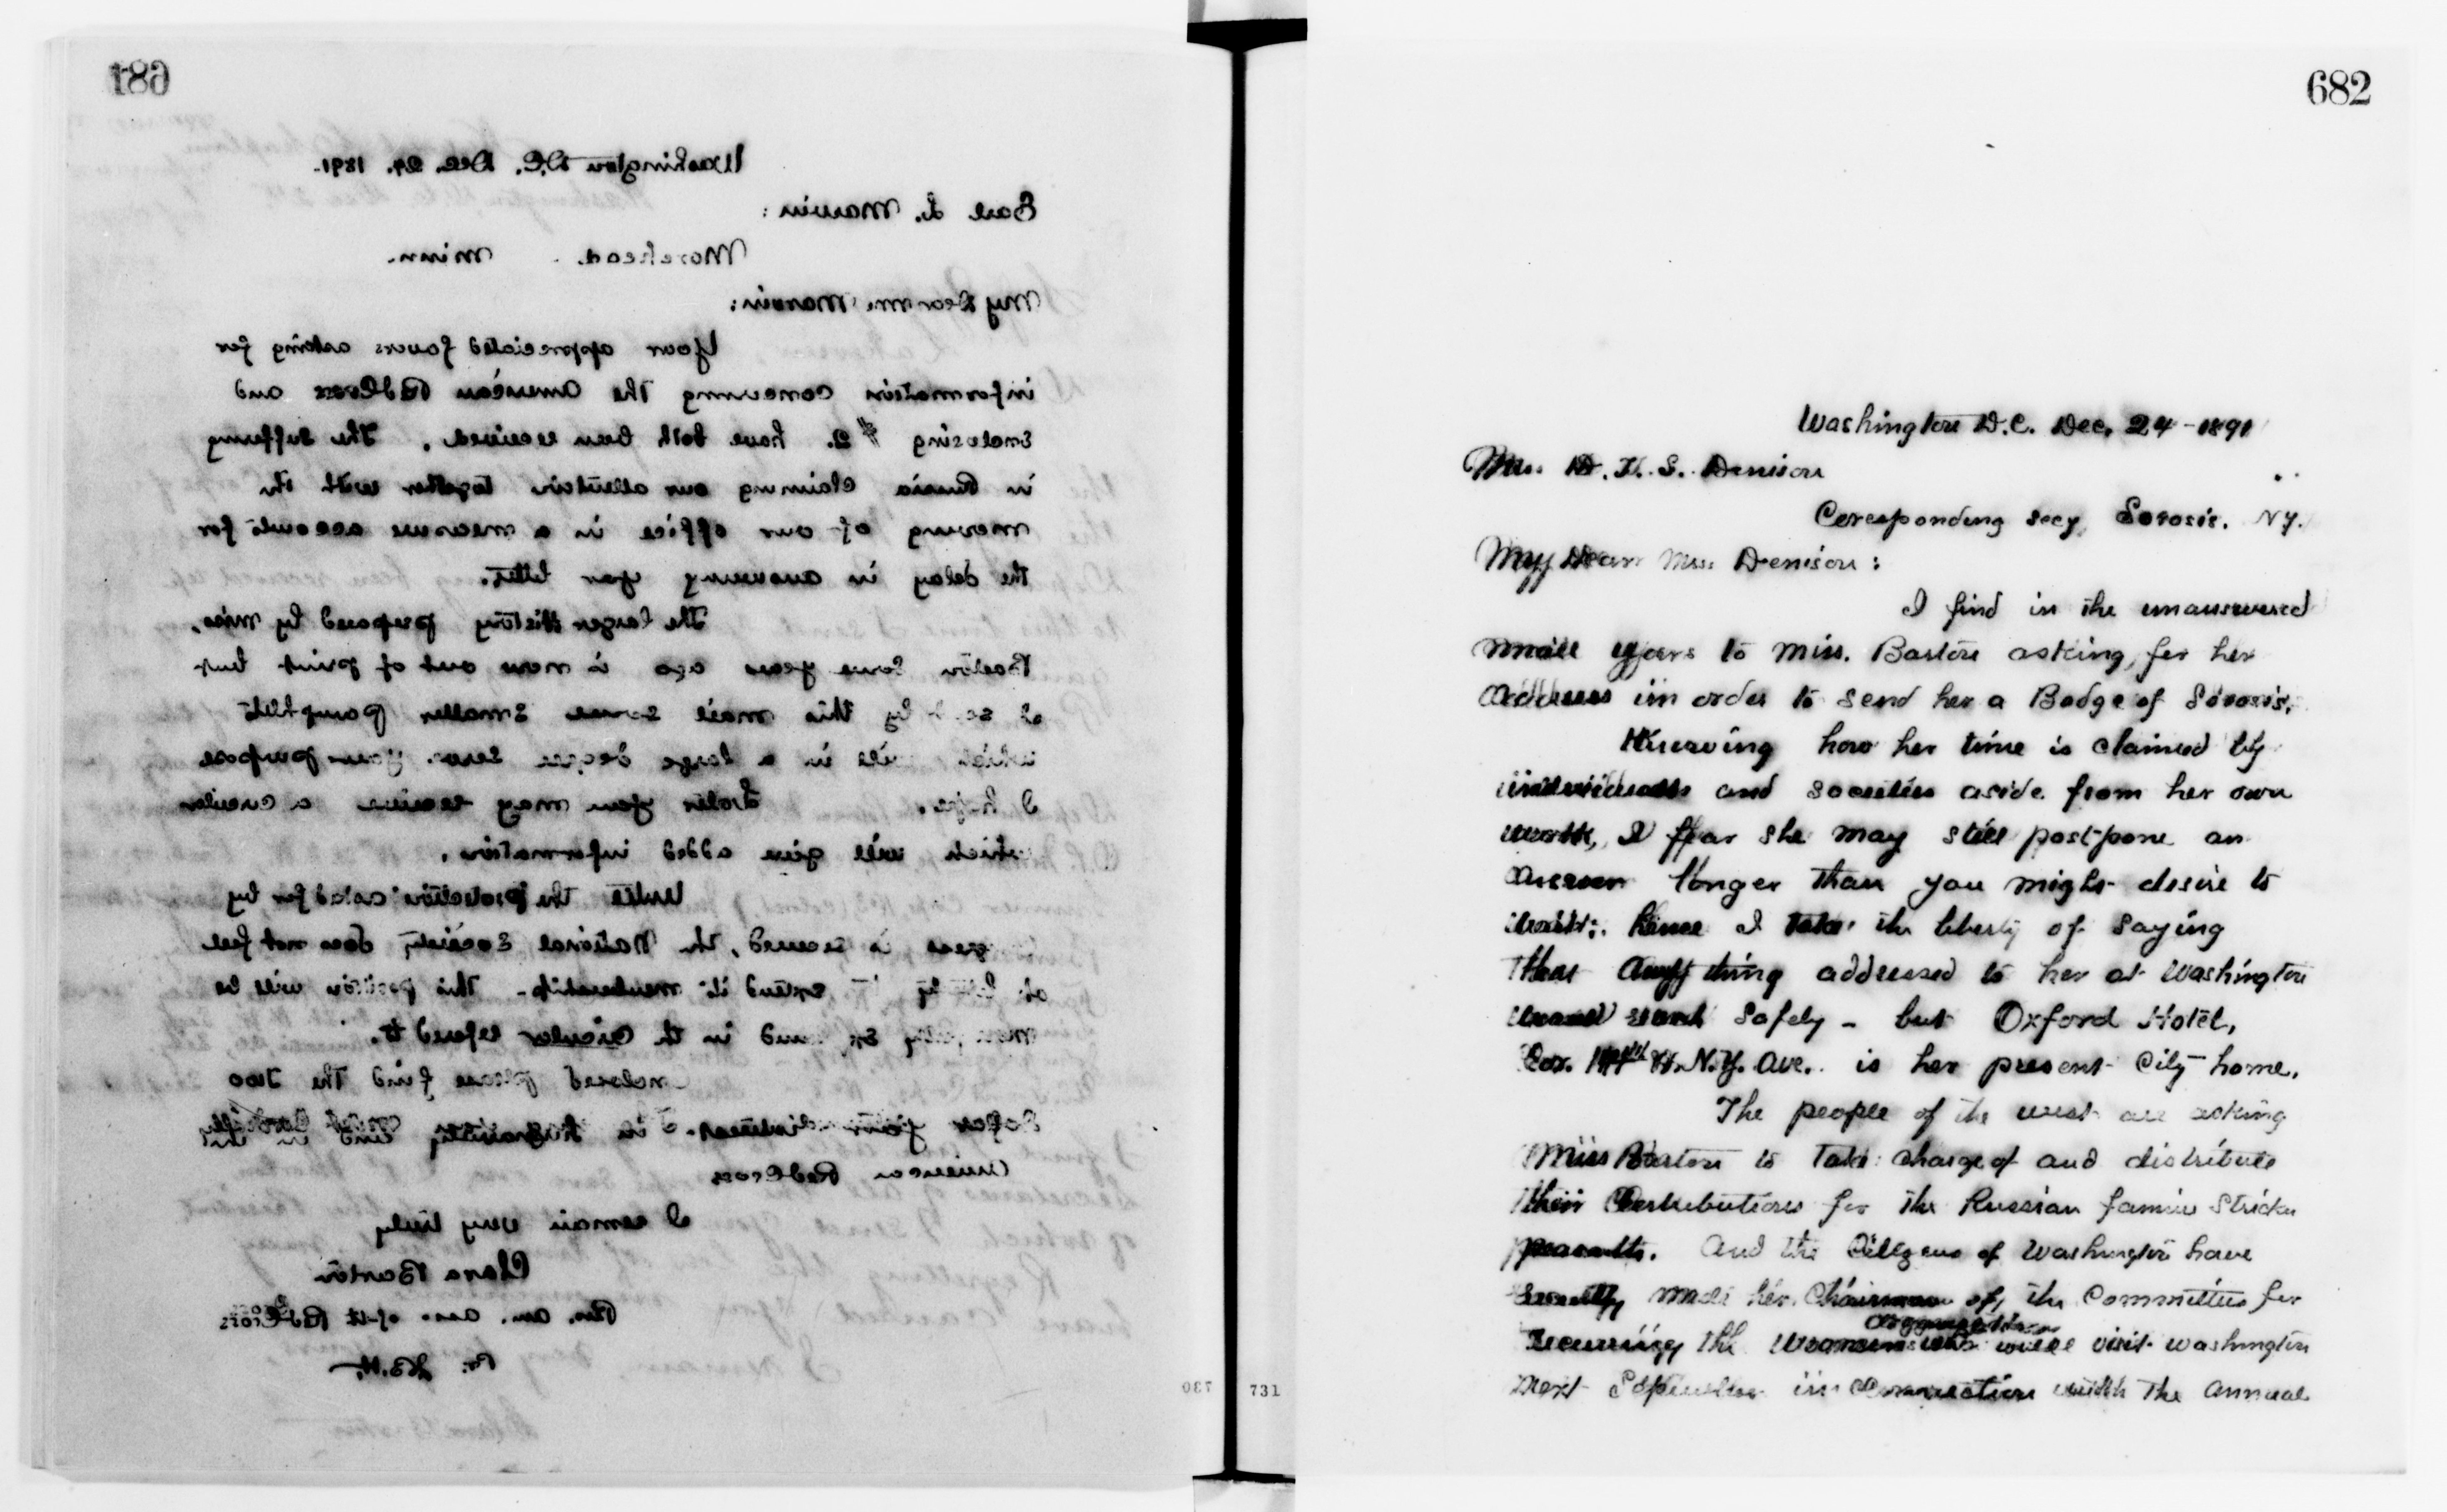 681
Washington D.C. Dec. 24. 1891.
Earl L. Marvin:
Morehead. Minn.
My Dear Mr. Marvin:
Your appreciated favors asking for
information concerning the American Red Cross and
enclosing $2. have both been received. The suffering
in Russia claiming our attention together with the
moving of our office in a measure accounts for
the delay in answering your letter.
The larger History prepared by Miss.
Barton some years ago is now out of print but
I send by this mail some smaller pamphlets
which will in a large degree serve your purpose
I hope. Later you may receive a circular
which will give added information.
Until the protection asked for by
Congress is secured, the National Society does not feel
at liberty to extend its membership. This position will be
more fully explained in the circular refered to.
Enclosed please find the two
Dollars
American Red Cross
I remain very truly
Clara Barton
Pres. Am. Ass. of the Red Cross
Pr. K.B.H.
730
682
Washington D.C. Dec. 24-1891
Mrs. Dr. H. S. Denison
Coresponding Secy. Sorosis. N.Y.
My Dear Mrs. Denison:
I find in the unanswered
mail yours to Miss. Barton asking for her
address in order to send her a Badge of Sorosis.
Knowing how her time is claimed by
individuals and societies aside from her own
work, I fear she may still postpone an
answer longer than you might desire to
wait; hence I take the liberty of saying
that any thing addressed to her at Washington
would reach safely - but Oxford Hotel,
Cor. 14th & N.Y. Ave. is her present City home.
The people of the west are asking
Miss Barton to take charge of and distribute
their Contributions for the Russian famine stricken
peasants. And the Citizens of Washington have
recently made her Chairman of the Committee for
organizations
receiving the Womens who will visit Washington
next September in connection with the annual
731